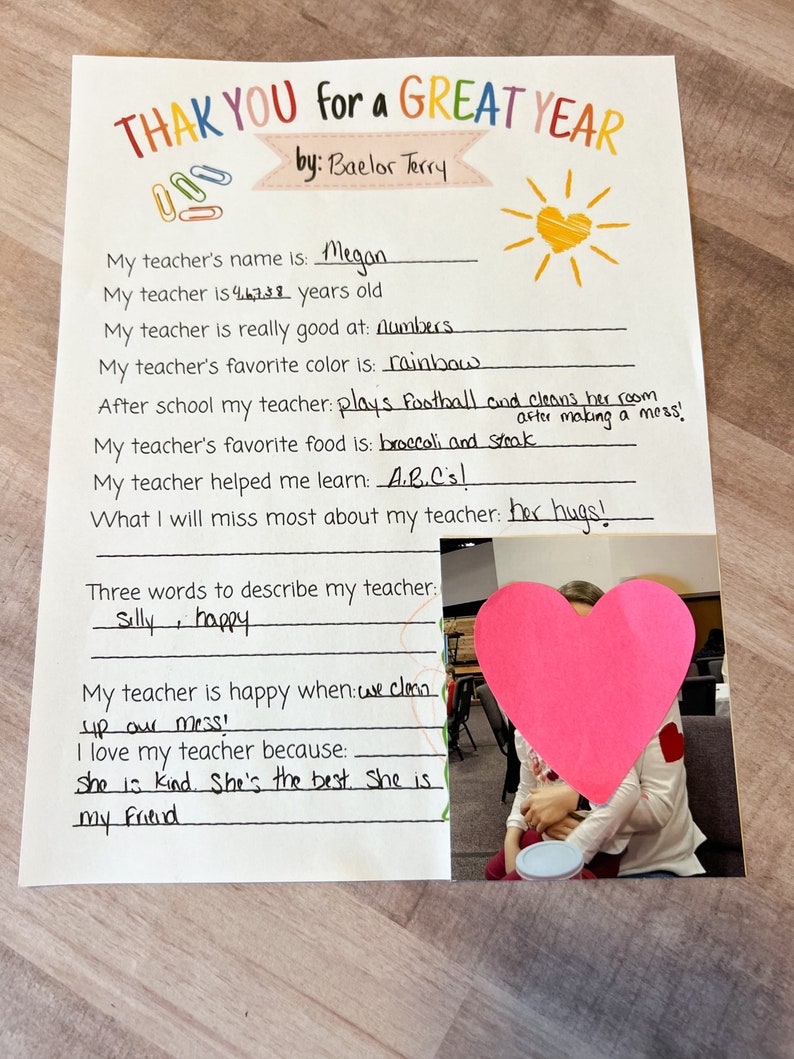 THAK YOU for a GREAT YEAR
by: Baelor Terry
My teacher's name is: Megan
My teacher is 4,6,7,38 years old
My teacher is really good at: numbers
My teacher's favorite color is: rainbow
After school my teacher: plays Football and cleans her room
after making a mess!
My teacher's favorite food is: broccoli and steak
My teacher helped me learn: A.B.C's!
What I will miss most about my teacher: her hugs!
Three words to describe my teacher:
silly , happy
My teacher is happy when: we clean
up our mess!
I love my teacher because:
She is kind. She's the best. She is
my Friend